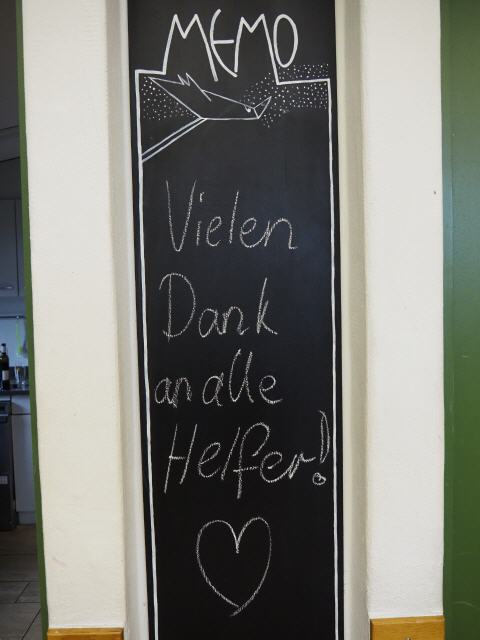 MEMO
Vielen
Dank
an alle
Helfer!